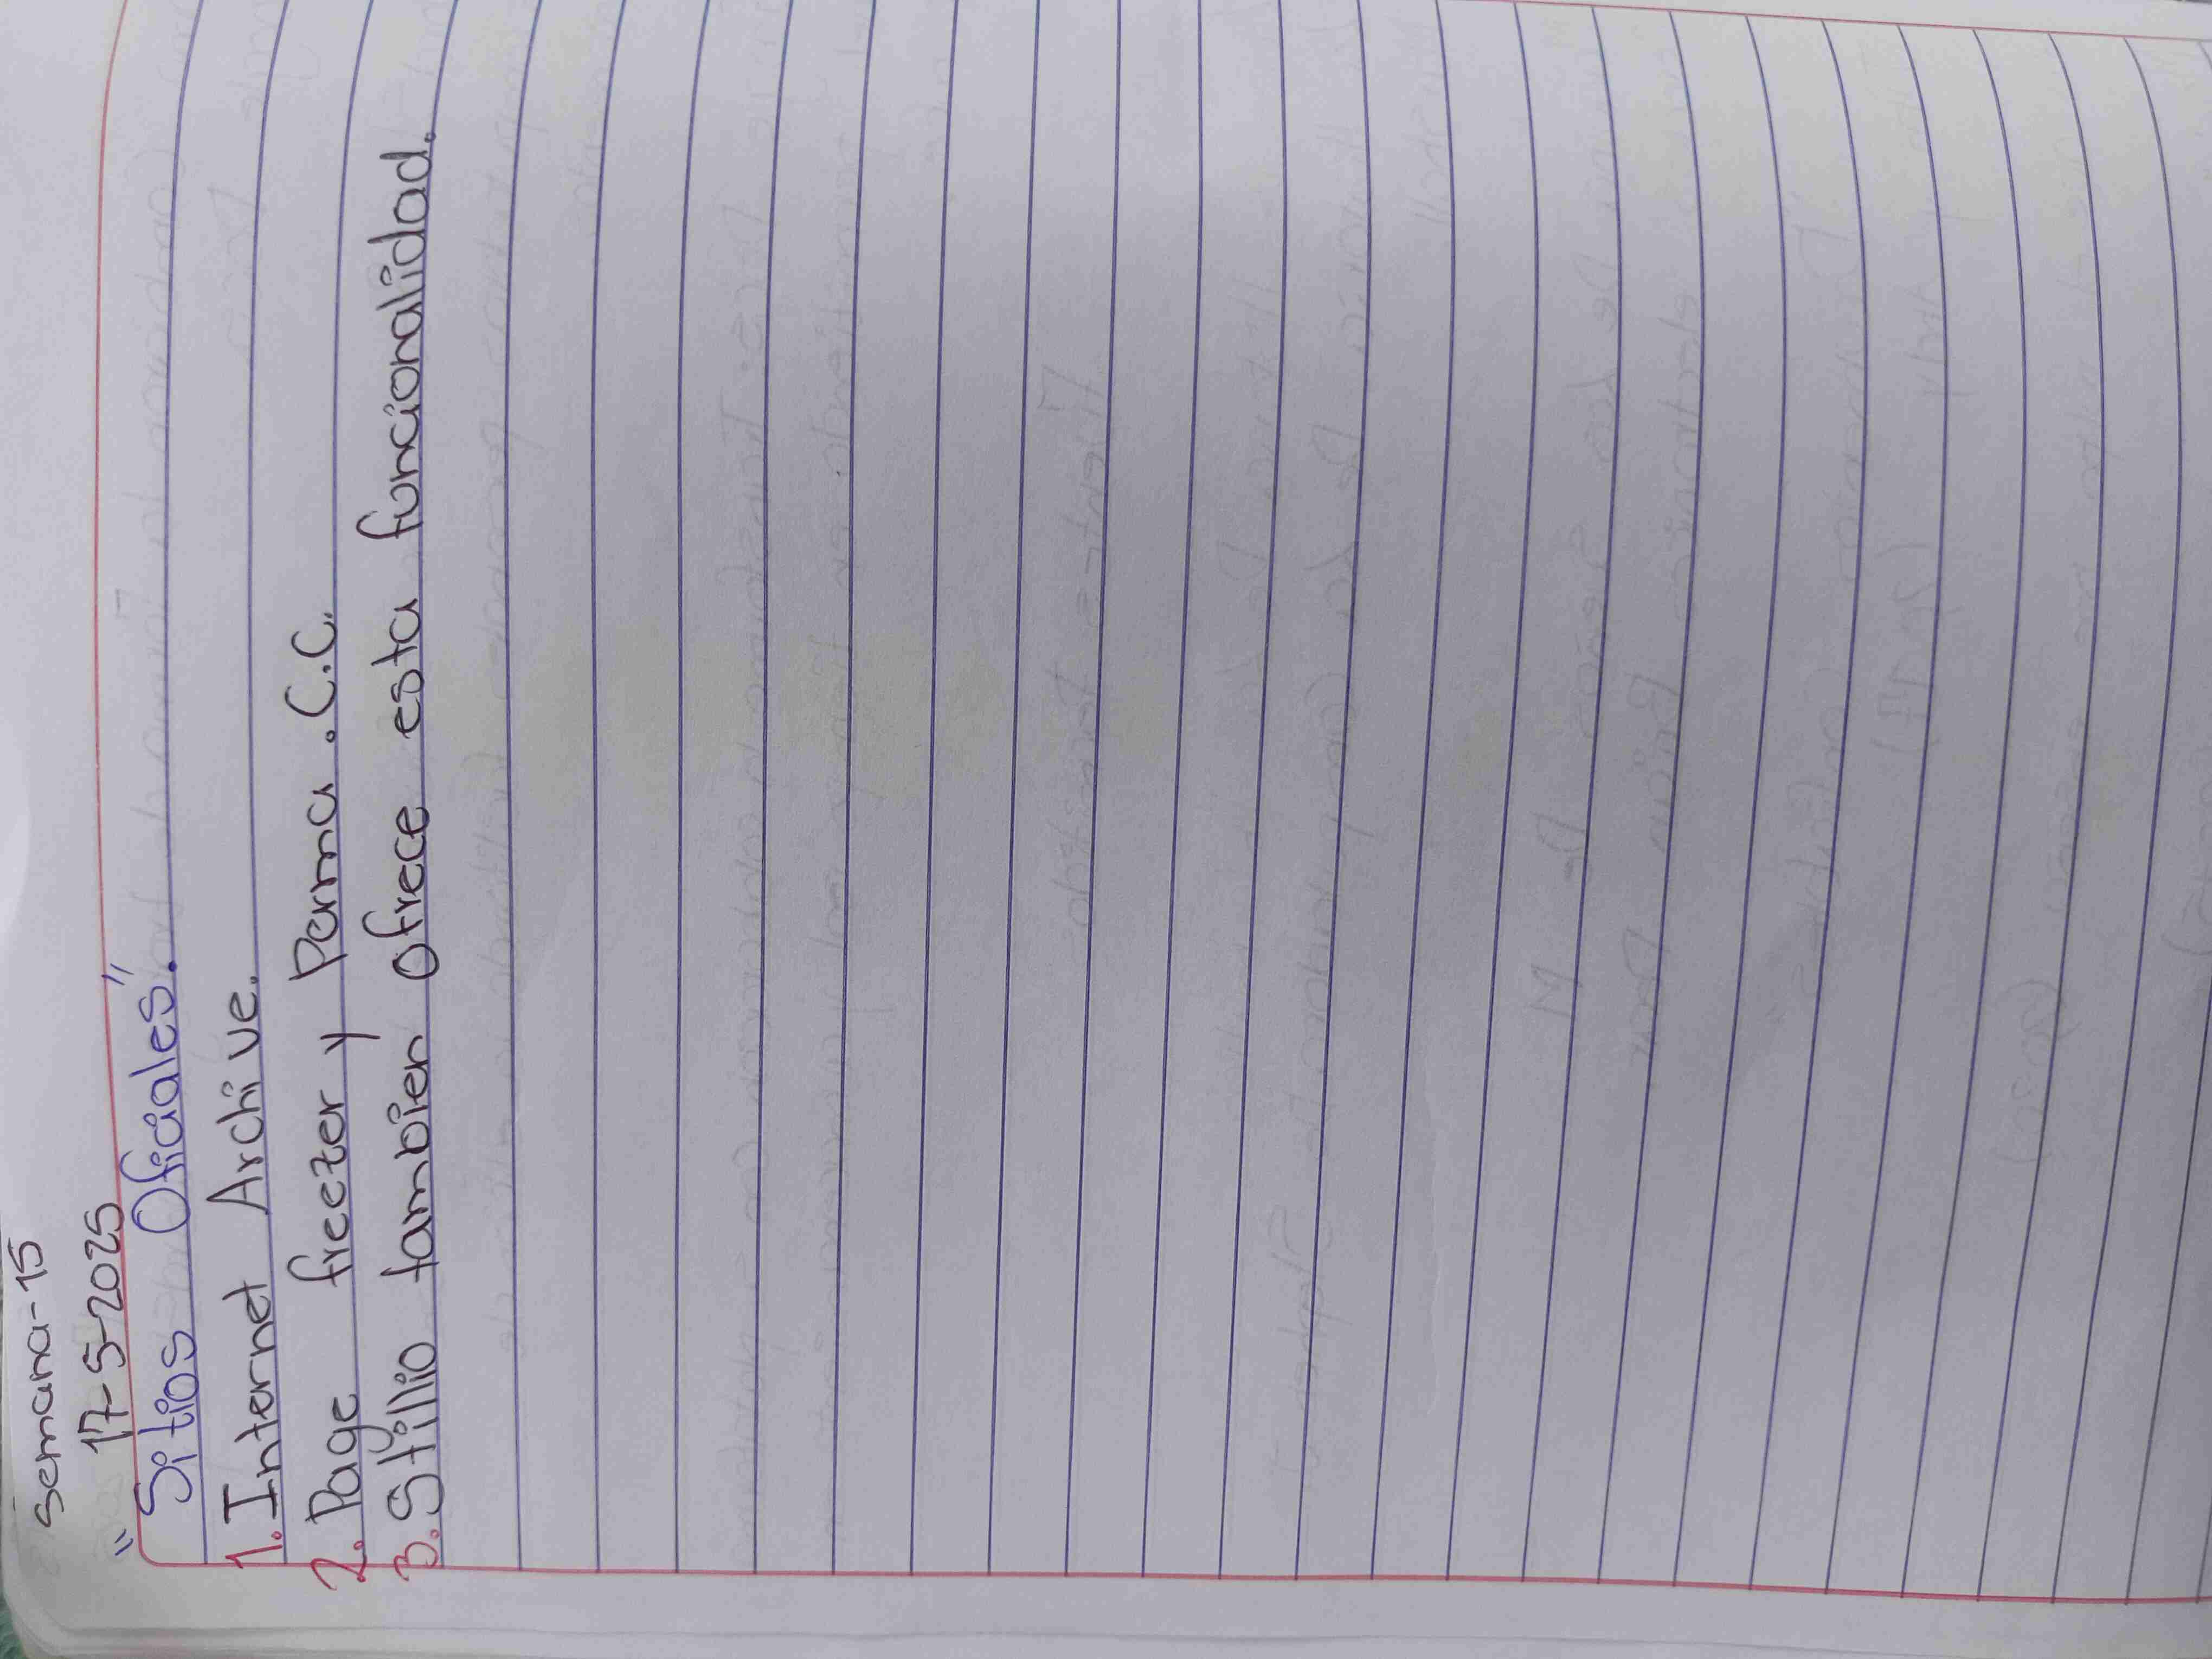 Semana-15
17-5-2025
"Sitios Oficiales."
1. Internet Archive.
2. Page freezer y Perma.C.C.
3. Stillio tambien Ofrece esta funcionalidad.